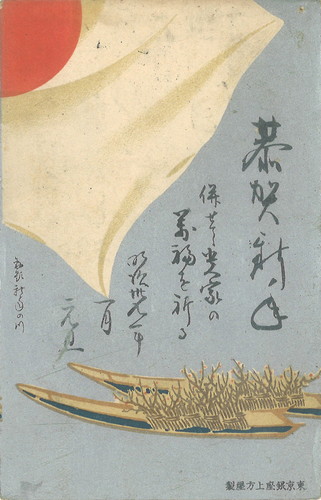 恭賀新年
併せて貴家の
萬福を祈る
明治卅九年
一月
元旦
東京銀座上方屋製